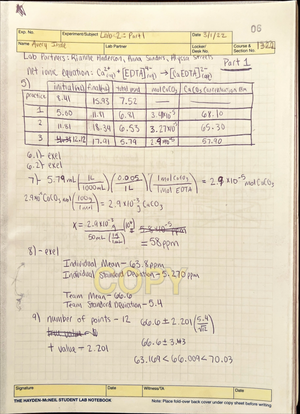 06
Exp. No.
Experiment/Subject Lab 2 - Part 1
Date 3/1/22
Name Avery
Lab Partner
Locker/Desk No.
Course & Section No. 1322
Lab Partners: Rianne Anderson, Anna Sanders, Alyssa Streets
Part 1
net ionic equation: Ca2+(aq) + [EDTA]4-(aq) → [CaEDTA]2-(aq)
5)
initial (mL) final (mL) total mL mol CaCO3 CaCO3 Concentration ppm
practice 8.41 15.93 7.52
1 5.00 11.81 6.81 68.10
2 11.81 18.34 6.53 65.30
3 12.12 17.91 5.79 2.9x10-5 57.90
6.1) - exel
6.2) - exel
7) - 5.79 mL (1L/1000mL) (0.005/1L) (1 mol CaCO3/1 mol EDTA) = 2.9x10-5 mol CaCO3
2.9x10-5 CaCO3 mol (100g/1mol) = 2.9x10-3 g CaCO3
x = 2.9x10-3 g / 50mL (1g/1mL) (10^6)
= 58 ppm
8) - exel
Individual Mean - 63.8 ppm
Individual Standard Deviation - 5.270 ppm
Team Mean - 66.6
Team Standard Deviation - 5.4
COPY
9) number of points - 12 66.6 ± 2.201 (5.4/√12)
66.6 ± 3.43
t value - 2.201
63.169 < 66.009 < 70.03
Signature
Date
Witness/TA
Date
THE HAYDEN-McNEIL STUDENT LAB NOTEBOOK
Note: Place fold-over back cover under copy sheet before writing